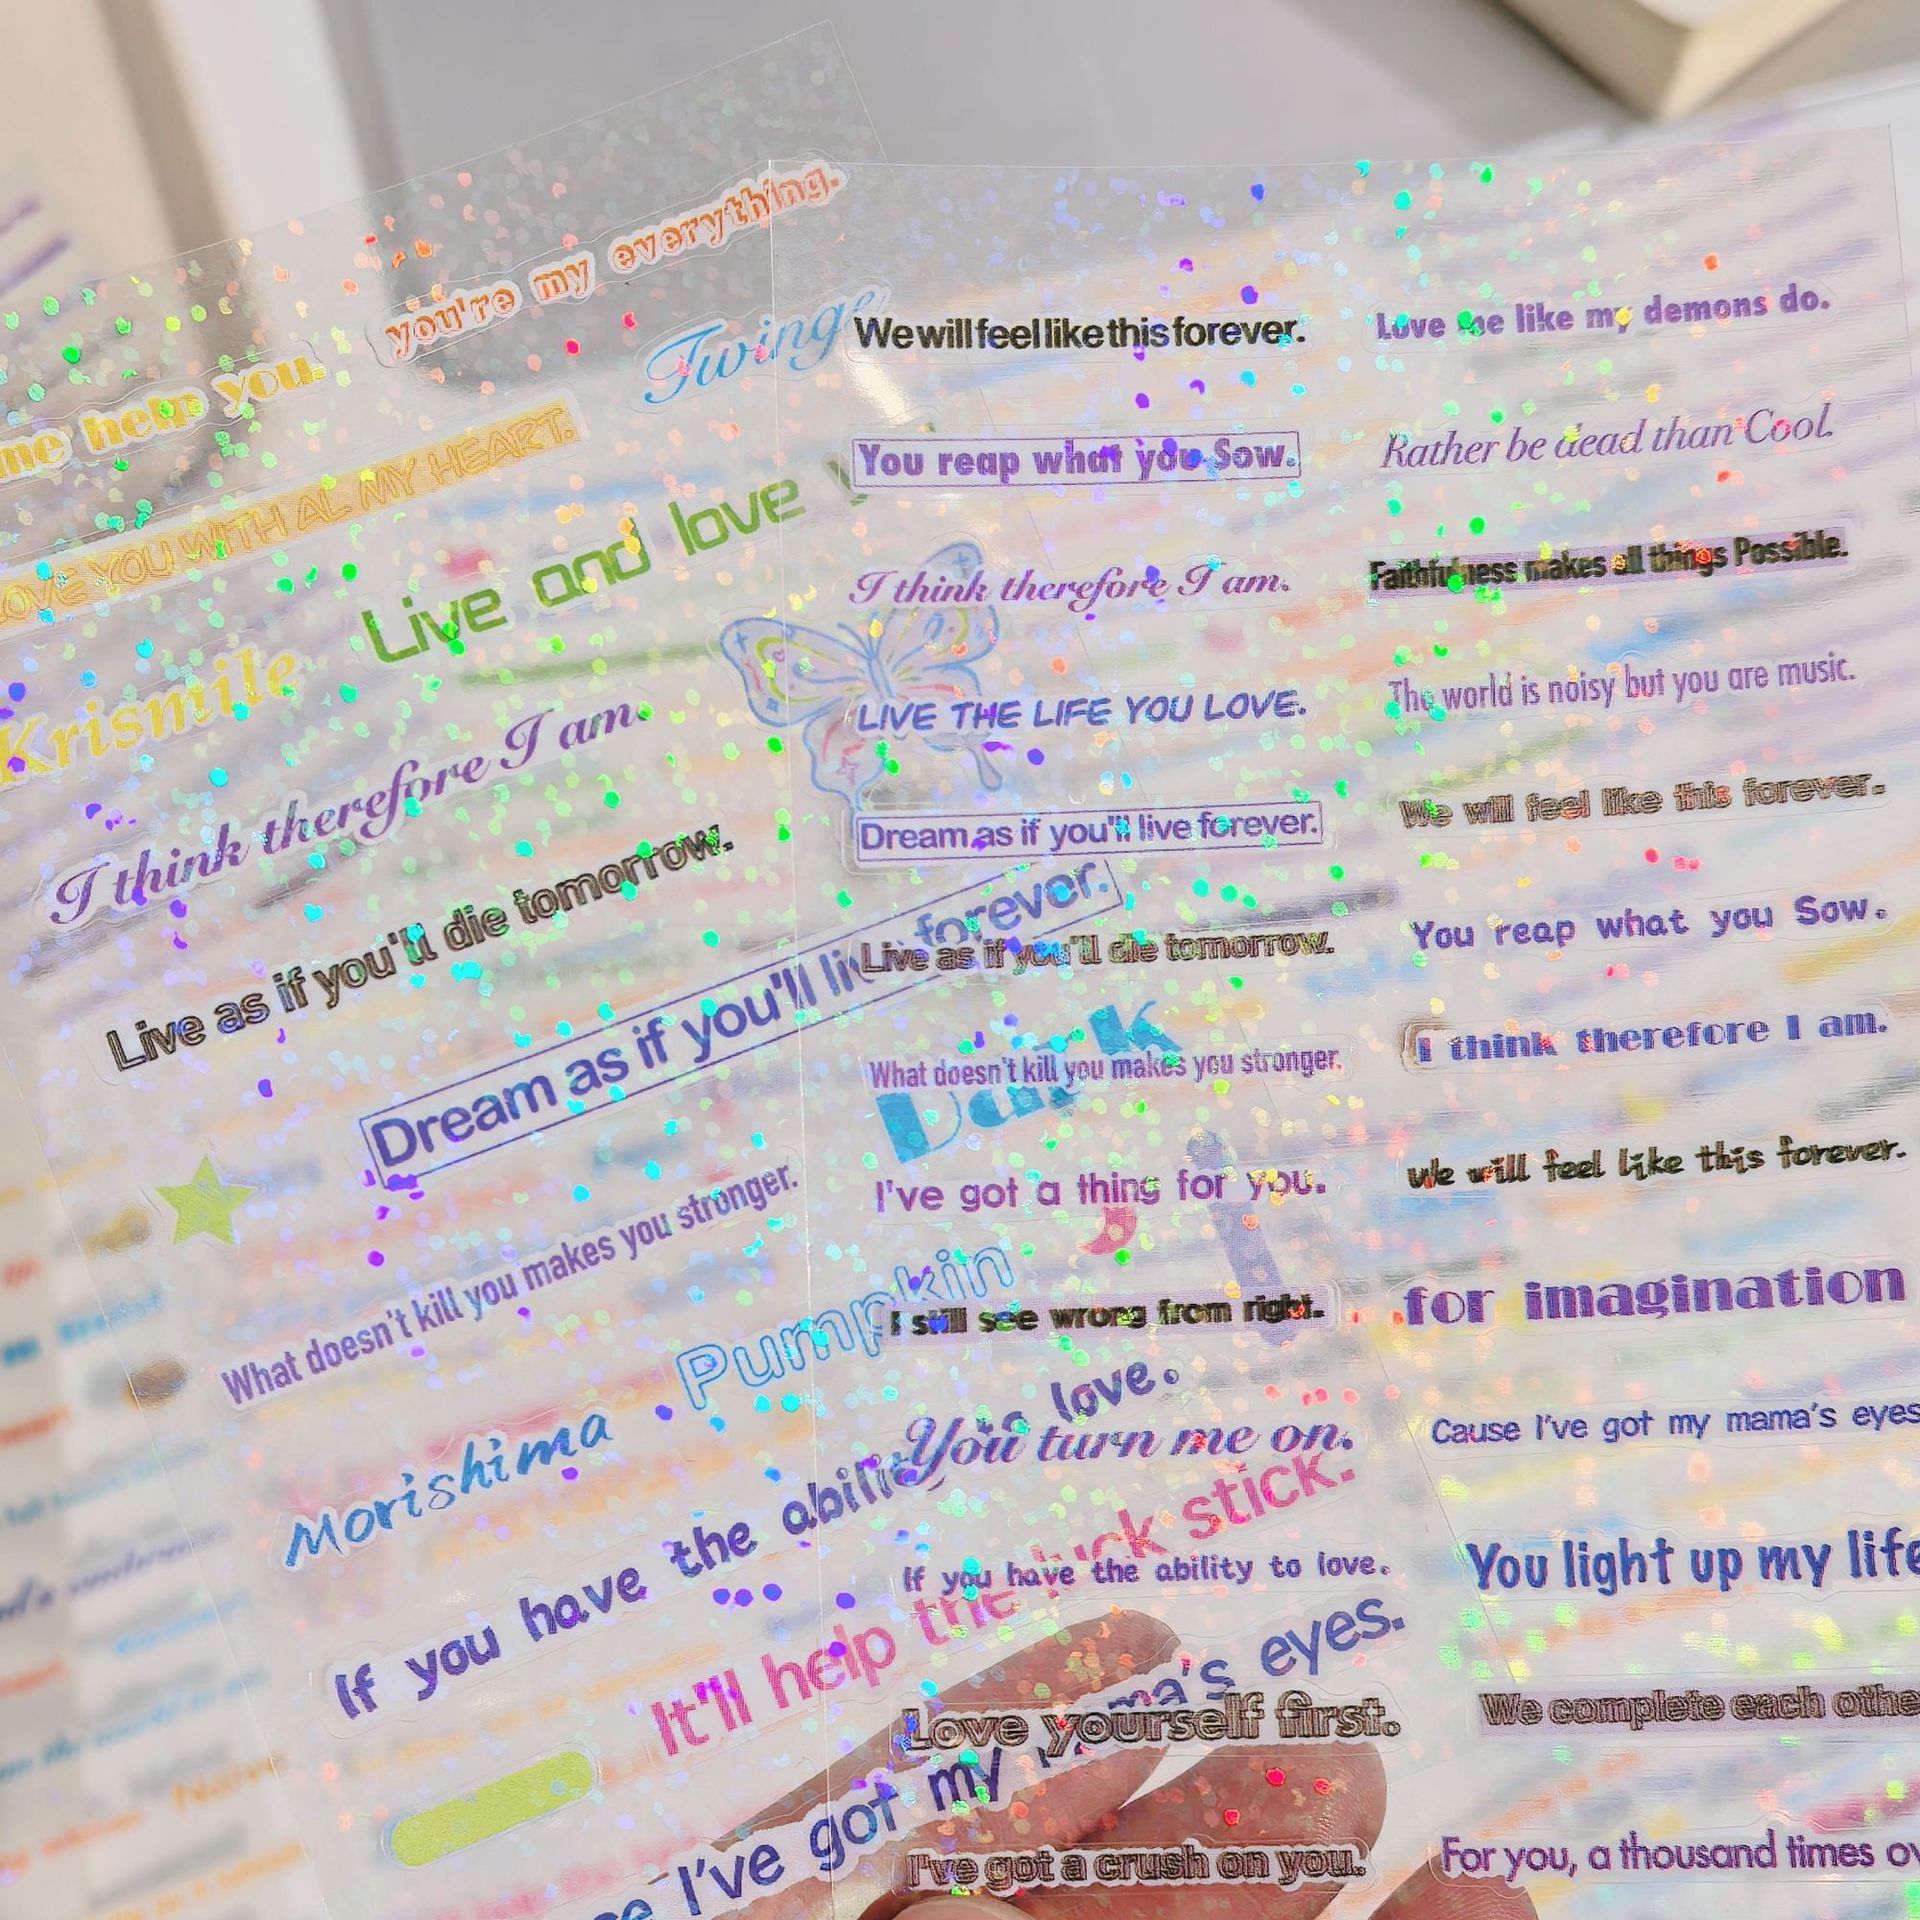 you're my everything.
Twinge
me help you.
LOVE YOU WITH AL MY HEART.
Live and love y
Krismile
I think therefore I am.
Live as if you'll die tomorrow.
Dream as if you'll li forever.
What doesn't kill you makes you stronger.
Pumpkin
Morishima
If you have the abili to love.
It'll help the luck stick.
I've got my ma's eyes.
Dark
We will feel like this forever.
You reap what you Sow.
I think therefore I am.
LIVE THE LIFE YOU LOVE.
Dream as if you'll live forever.
Live as if you'll die tomorrow.
What doesn't kill you makes you stronger.
I've got a thing for you.
I still see wrong from right.
You turn me on.
If you have the ability to love.
Love yourself first.
I've got a crush on you.
Love me like my demons do.
Rather be dead than Cool.
Faithfulness makes all things Possible.
The world is noisy but you are music.
We will feel like this forever.
You reap what you Sow.
I think therefore I am.
We will feel like this forever.
for imagination
Cause I've got my mama's eyes
You light up my life
We complete each othe
For you, a thousand times ov